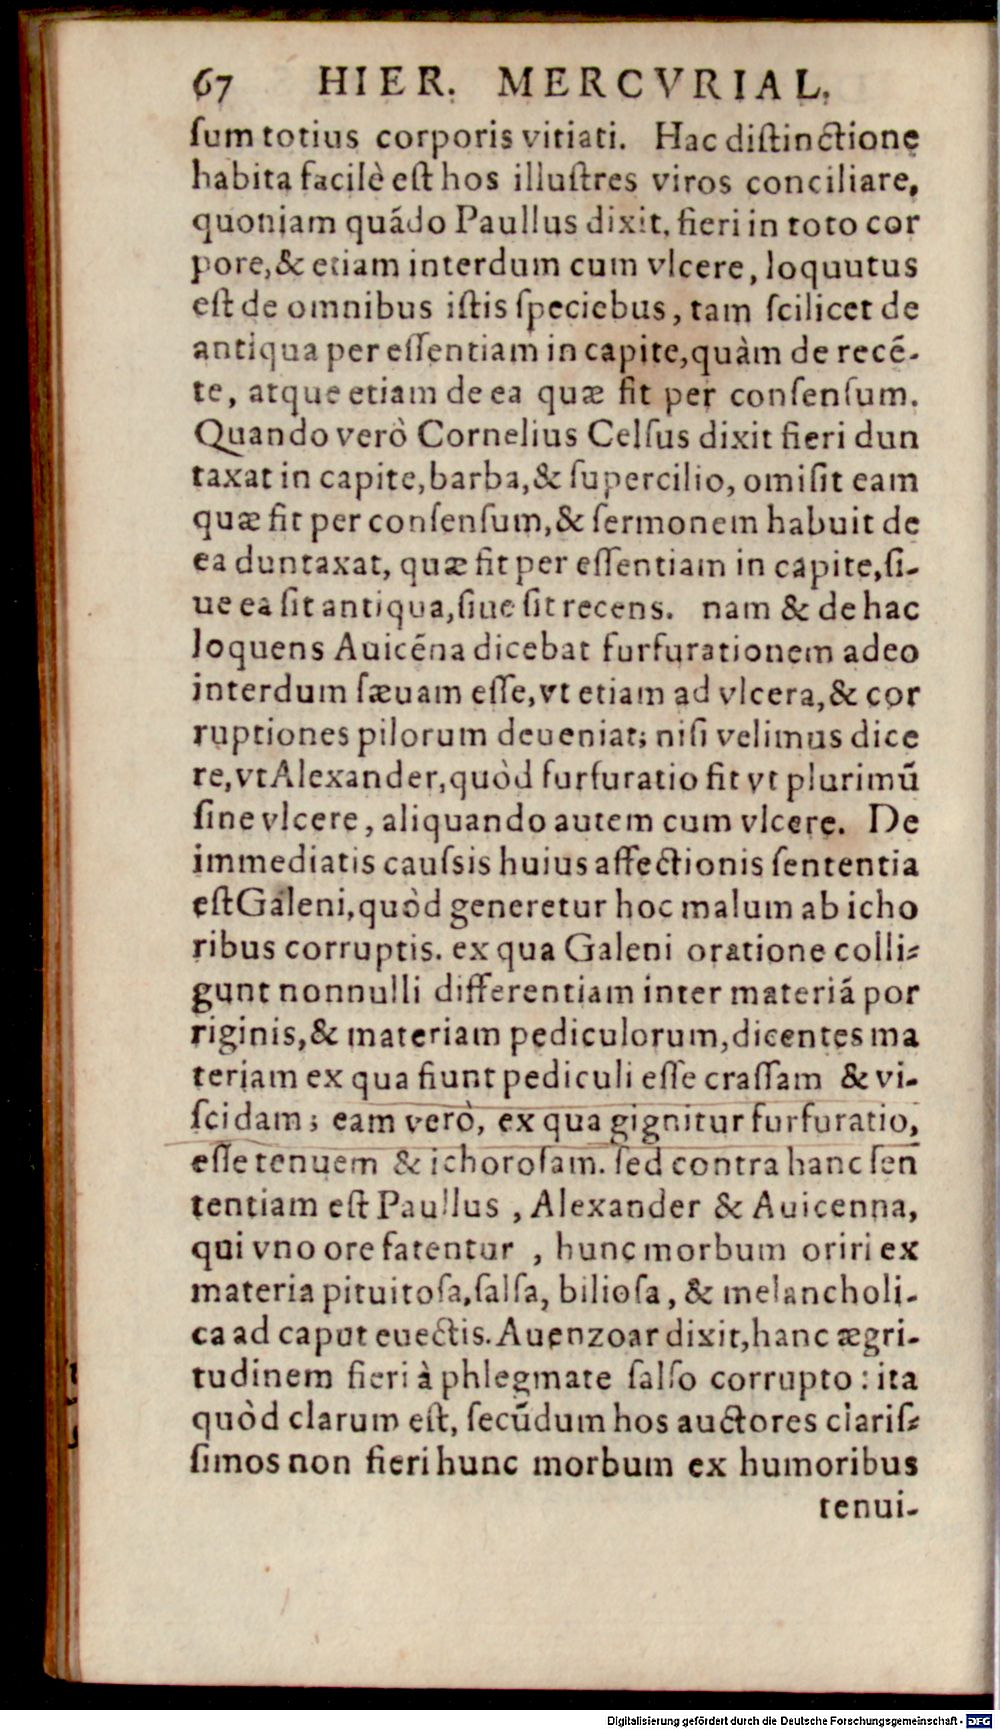 67 HIER. MERCVRIAL.
ſum totius corporis vitiati. Hac diſtinctione
habita facilè eſt hos illuſtres viros conciliare,
quoniam quãdo Paullus dixit, fieri in toto cor
pore, & etiam interdum cum vlcere, loquutus
eſt de omnibus iſtis ſpeciebus, tam ſcilicet de
antiqua per eſſentiam in capite, quàm de recẽ-
te, atque etiam de ea quæ fit per conſenſum.
Quando verò Cornelius Celſus dixit fieri dun
taxat in capite, barba, & ſupercilio, omiſit eam
quæ fit per conſenſum, & ſermonem habuit de
ea duntaxat, quæ fit per eſſentiam in capite, ſi-
ue ea ſit antiqua, ſiue ſit recens. nam & de hac
loquens Auicẽna dicebat furfurationem adeo
interdum ſæuam eſſe, vt etiam ad vlcera, & cor
ruptiones pilorum deueniat; niſi velimus dice
re, vt Alexander, quòd furfuratio fit vt plurimũ
ſine vlcere, aliquando autem cum vlcere. De
immediatis cauſsis huius affectionis ſententia
eſt Galeni, quòd generetur hoc malum ab icho
ribus corruptis. ex qua Galeni oratione colli-
gunt nonnulli differentiam inter materiã por
riginis, & materiam pediculorum, dicentes ma
teriam ex qua fiunt pediculi eſſe craſſam & vi-
ſcidam; eam verò, ex qua gignitur furfuratio,
eſſe tenuem & ichoroſam. ſed contra hanc ſen
tentiam eſt Paullus, Alexander & Auicenna,
qui vno ore fatentur, hunc morbum oriri ex
materia pituitoſa, ſalſa, bilioſa, & melancholi-
ca ad caput euectis. Auenzoar dixit, hanc ægri-
tudinem fieri à phlegmate ſalſo corrupto: ita
quòd clarum eſt, ſecũdum hos auctores clariſ-
ſimos non fieri hunc morbum ex humoribus
tenui-
Digitalisierung gefördert durch die Deutsche Forschungsgemeinschaft - DFG